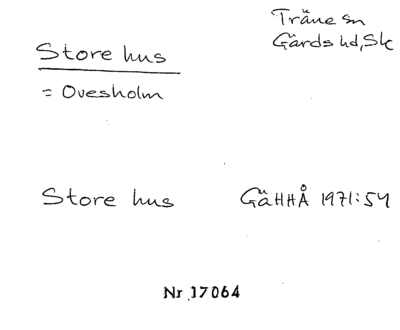 Träne sn
Gärds hd, Sk
Store hus
= Ovesholm
Store hus GäHHÅ 1971:54
Nr 17064